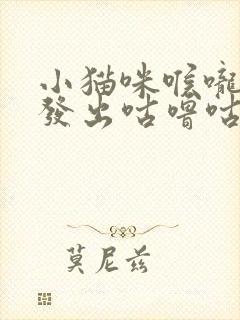 小猫咪喉嚨
發出咕嚕咕
莫尼兹